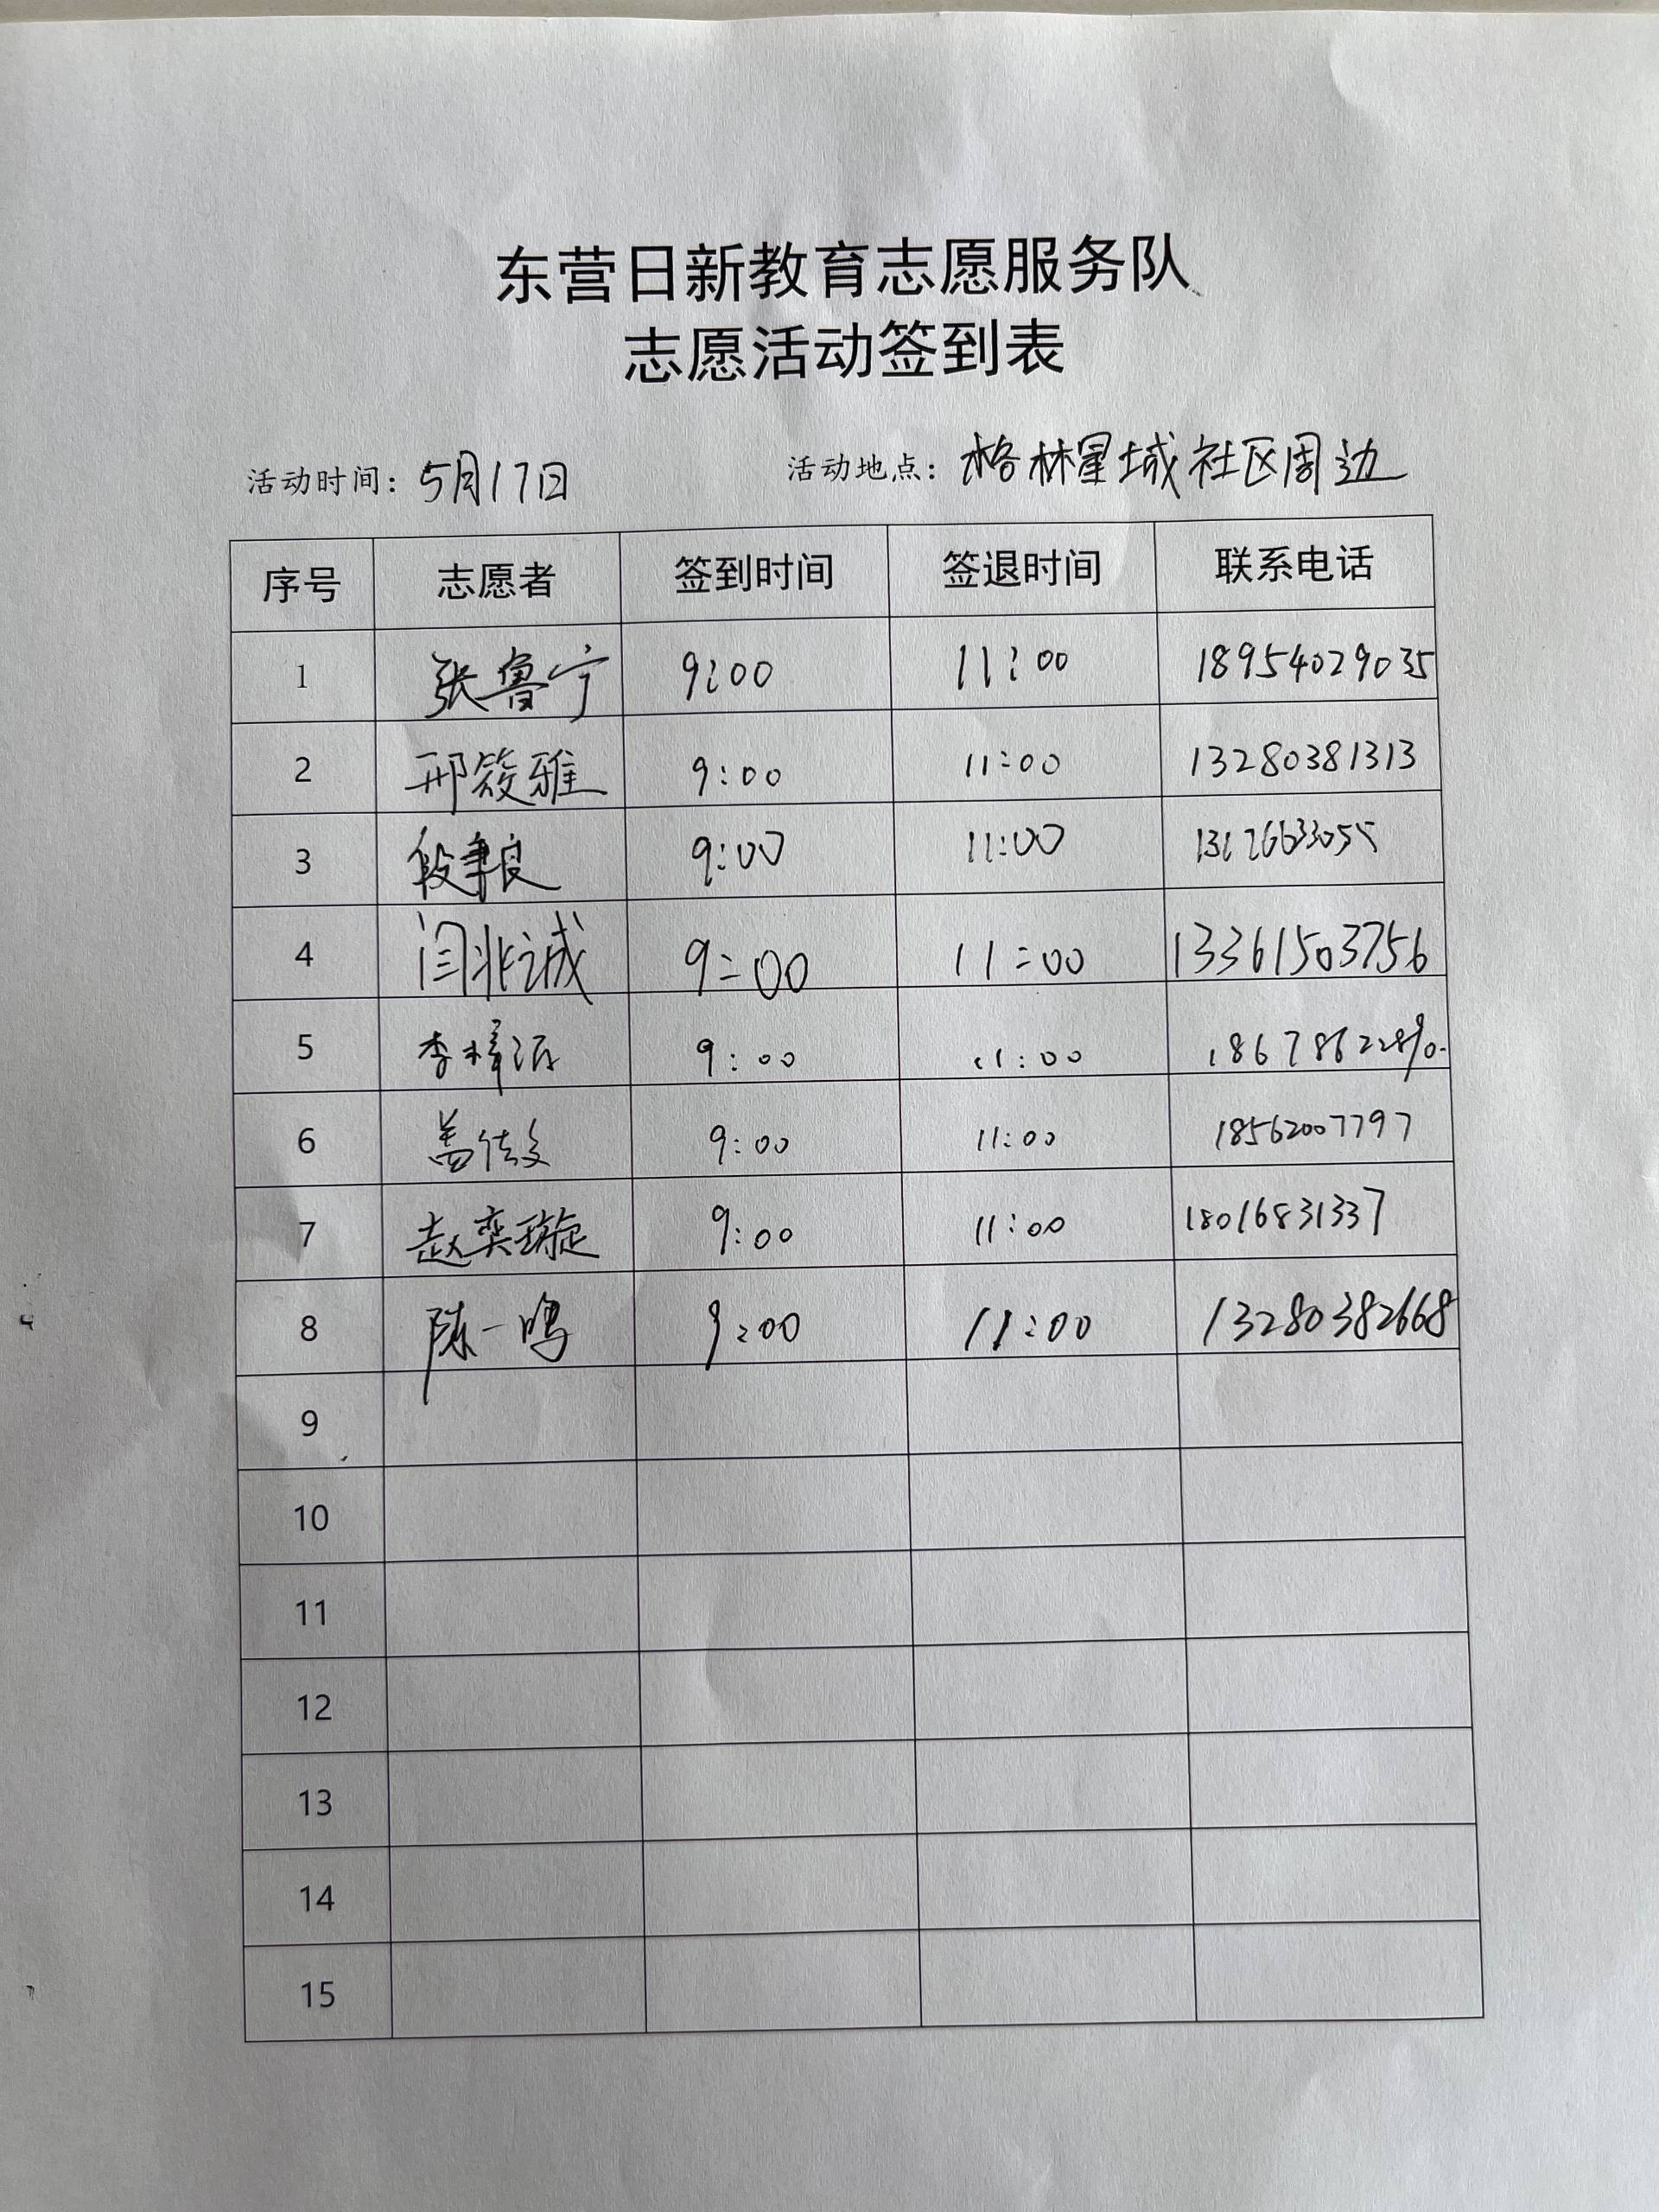 东营日新教育志愿服务队
志愿活动签到表
活动时间：5月17日 活动地点：格林星城社区周边
序号 志愿者 签到时间 签退时间 联系电话
1 张鲁宁 9:00 11:00 18954029035
2 邢筱雅 9:00 11:00 13280381313
3 9:00 11:00
4 闫兆诚 9:00 11:00 13361503756
5 9:00 11:00
6 9:00 11:00 18562007797
7 赵奕璇 9:00 11:00 18016831337
8 陈一鸣 9:00 11:00 13280382668
9
10
11
12
13
14
15